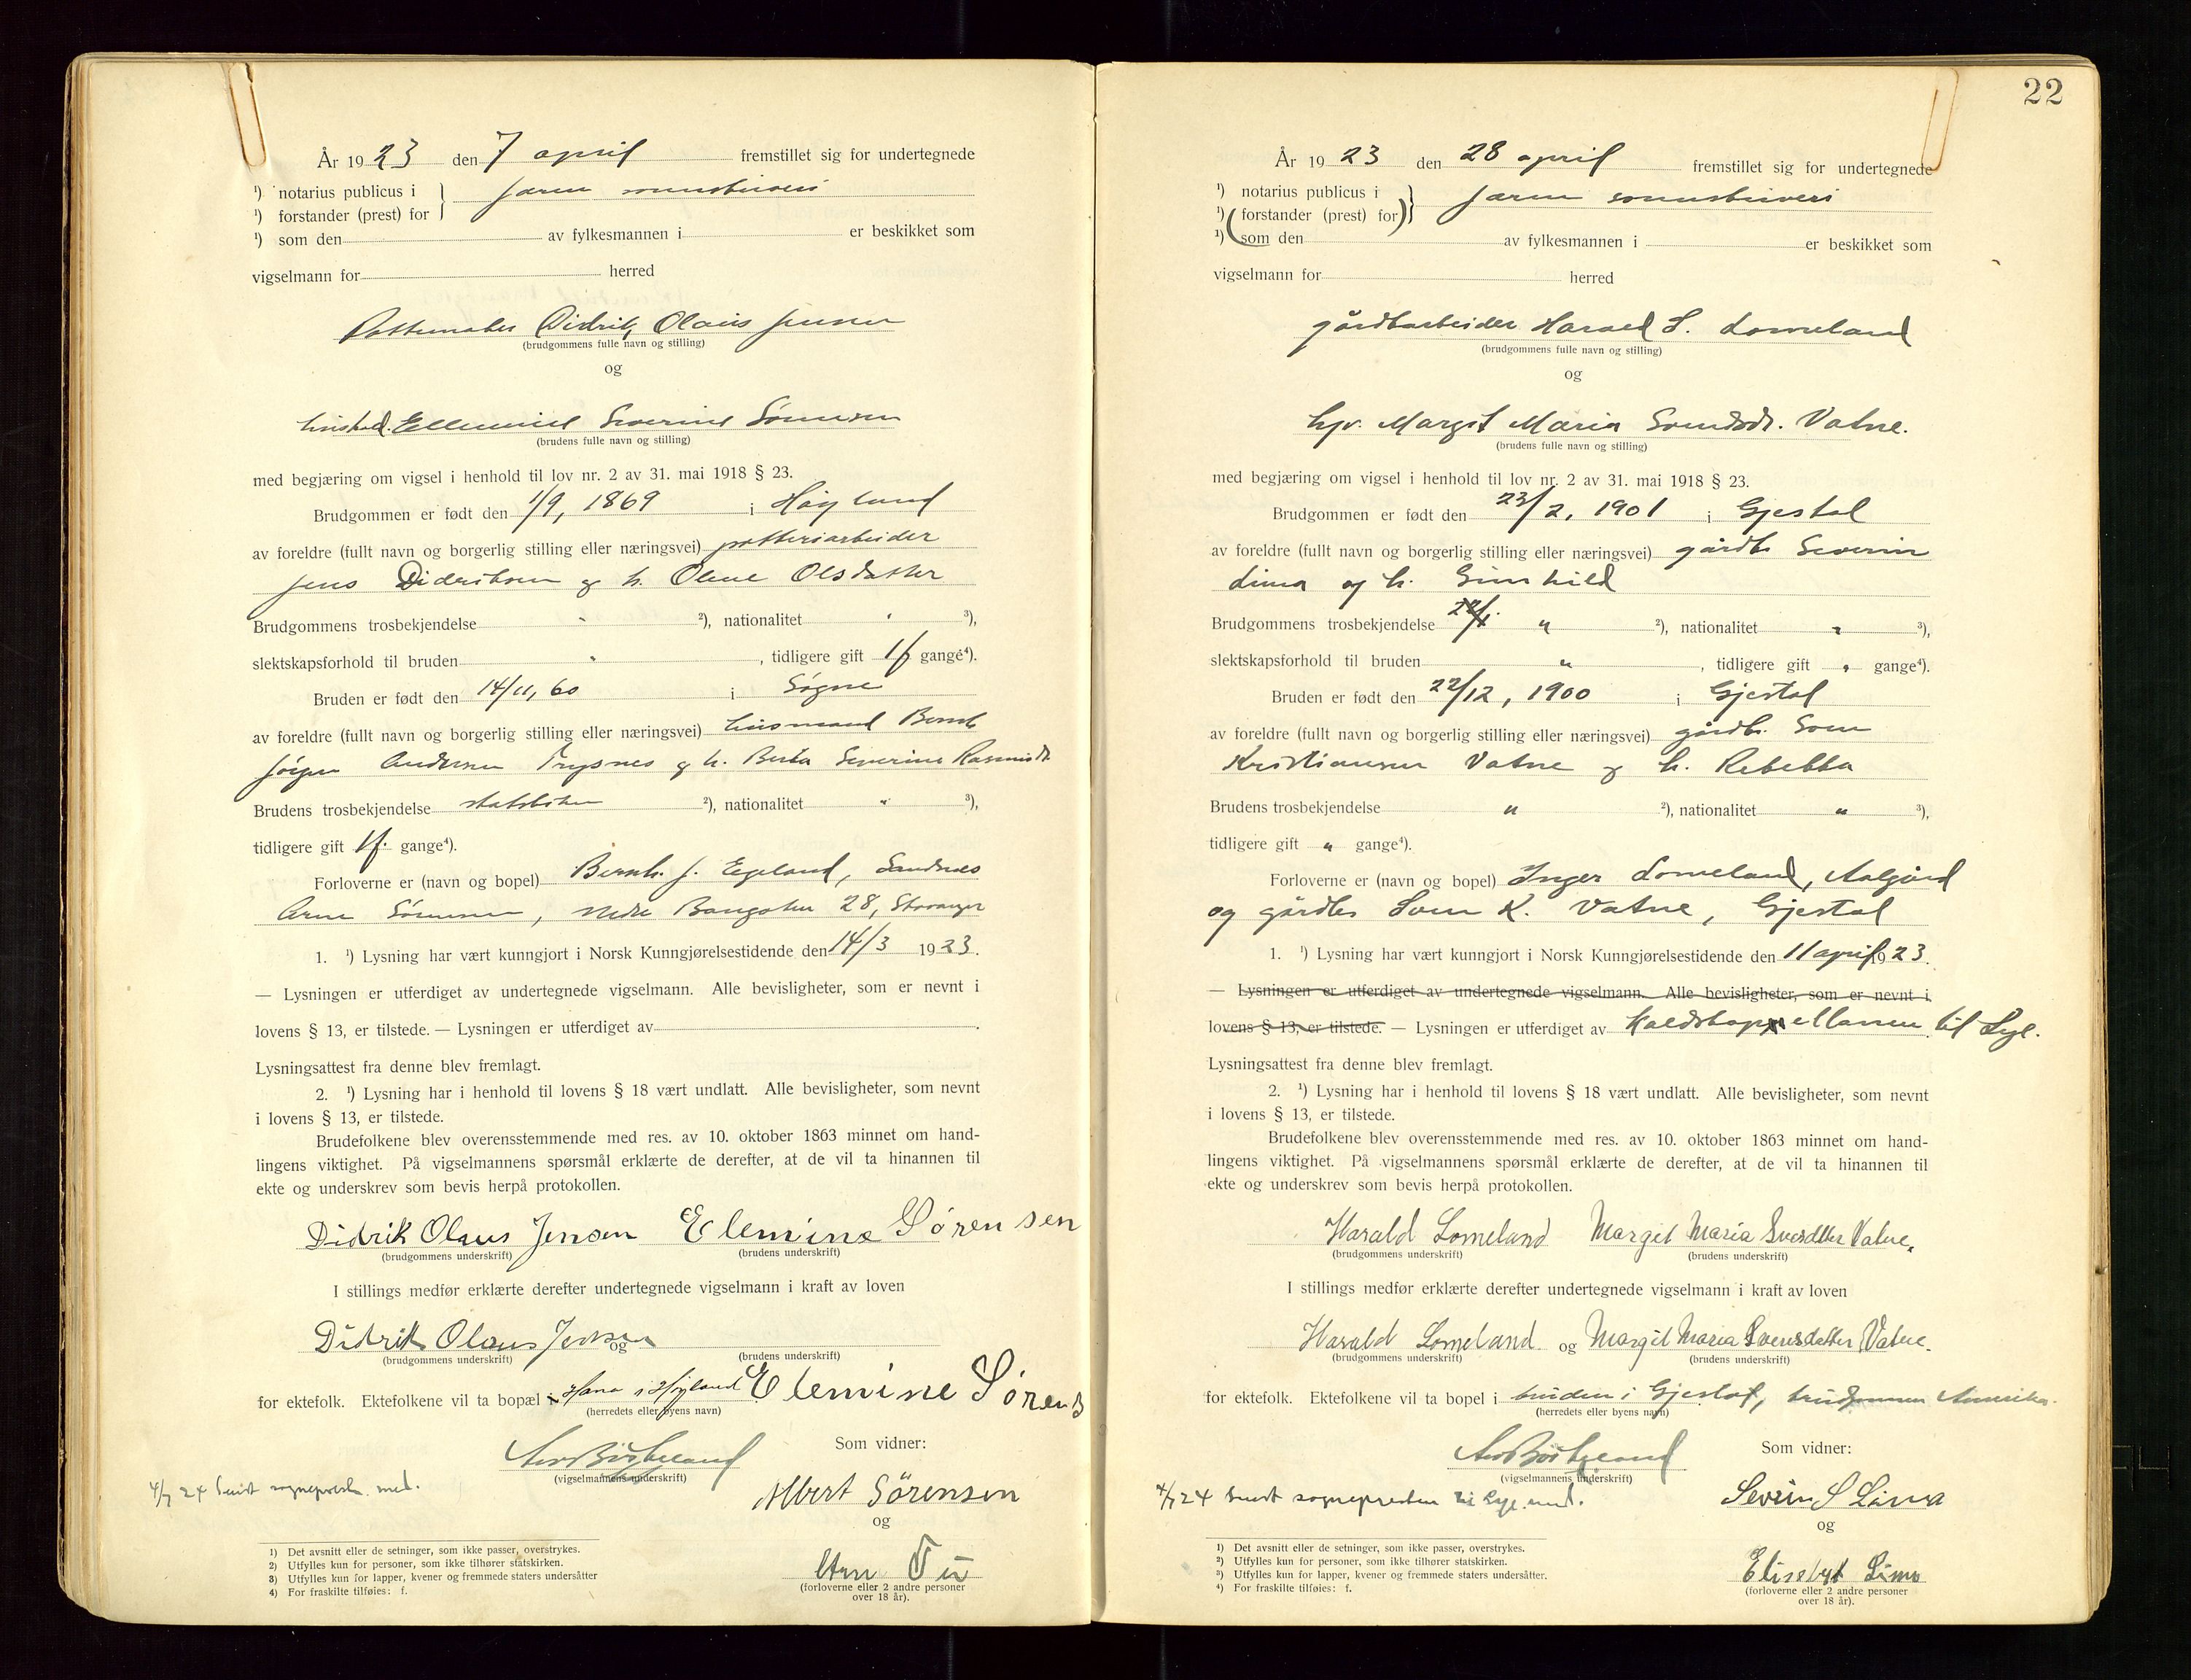 År 1923 den 7 april fremstillet sig for undertegnede
¹) notarius publicus i
¹) forstander (prest) for } Jæren
¹) som den av fylkesmannen i er beskikket som
vigselmann for herred
Didrik Olaus Jensen
(brudgommens fulle navn og stilling)
og
Severine Sørensen
(brudens fulle navn og stilling)
med begjæring om vigsel i henhold til lov nr. 2 av 31. mai 1918 § 23.
Brudgommen er født den 1/9, 1869 i Høyland
av foreldre (fullt navn og borgerlig stilling eller næringsvei) potteriarbeider
Jens Didriksen og h. Olene Olsdatter
Brudgommens trosbekjendelse " ²), nationalitet " ³),
slektskapsforhold til bruden " , tidligere gift 1f gange⁴).
Bruden er født den 14/11, 60 i Søgne
av foreldre (fullt navn og borgerlig stilling eller næringsvei) husmand Bernt
Jörgen Andersen Trysnes og h. Berta Severine Rasmusdt
Brudens trosbekjendelse statskirken ²), nationalitet " ³),
tidligere gift 1f. gange⁴).
Forloverne er (navn og bopel) Bernh. J. Egeland, Sandnes
Arne Sörensen, nedre Bangaten 28, Stavanger
1. ¹) Lysning har vært kunngjort i Norsk Kunngjørelsestidende den 14/3 1923.
— Lysningen er utferdiget av undertegnede vigselmann. Alle bevisligheter, som er nevnt i
lovens § 13, er tilstede. — Lysningen er utferdiget av .
Lysningsattest fra denne blev fremlagt.
2. ¹) Lysning har i henhold til lovens § 18 vært undlatt. Alle bevisligheter, som nevnt
i lovens § 13, er tilstede.
Brudefolkene blev overensstemmende med res. av 10. oktober 1863 minnet om hand-
lingens viktighet. På vigselmannens spørsmål erklærte de derefter, at de vil ta hinannen til
ekte og underskrev som bevis herpå protokollen.
Didrik Olaus Jensen Elemine Sørensen
(brudgommens underskrift) (brudens underskrift)
I stillings medfør erklærte derefter undertegnede vigselmann i kraft av loven
Didrik Olaus Jensen og
(brudgommens underskrift) (brudens underskrift)
for ektefolk. Ektefolkene vil ta bopæl i Hana i Høyland Elemine Sørens
(herredets eller byens navn)
Som vidner:
(vigselmannens underskrift)
4/7 24 Sendt sogneprest. med.
Albert Sørensen
og
Arne
(forloverne eller 2 andre personer
over 18 år).
1) Det avsnitt eller de setninger, som ikke passer, overstrykes.
2) Utfylles kun for personer, som ikke tilhører statskirken.
3) Utfylles kun for lapper, kvener og fremmede staters undersåtter
4) For fraskilte tilføies: f.
22
År 1923 den 28 april fremstillet sig for undertegnede
¹) notarius publicus i
¹) (forstander (prest) for) } Jæren
¹) (som den av fylkesmannen i er beskikket som
vigselmann for herred
gårdbarbeider Harald S. Lomeland
(brudgommens fulle navn og stilling)
og
Margit Maria Svendsdt. Vatne.
(brudens fulle navn og stilling)
med begjæring om vigsel i henhold til lov nr. 2 av 31. mai 1918 § 23.
Brudgommen er født den 23/2, 1901 i Gjestal
av foreldre (fullt navn og borgerlig stilling eller næringsvei) gårdb. Severin
Lima og h. Gunhild
Brudgommens trosbekjendelse " ²), nationalitet " ³),
slektskapsforhold til bruden " , tidligere gift " gange⁴).
Bruden er født den 22/12, 1900 i Gjestal
av foreldre (fullt navn og borgerlig stilling eller næringsvei) gårdb. Sven
Kristiansen Vatne og h. Rebekka
Brudens trosbekjendelse " ²), nationalitet " ³),
tidligere gift " gange⁴).
Forloverne er (navn og bopel) Inger Lomeland, Aalgård
og gårdbr Sven K. Vatne, Gjestal
1. ¹) Lysning har vært kunngjort i Norsk Kunngjørelsestidende den 11 april 1923.
— Lysningen er utferdiget av undertegnede vigselmann. Alle bevisligheter, som er nevnt i
lovens § 13, er tilstede. — Lysningen er utferdiget av kaldskapellanen til Lye.
Lysningsattest fra denne blev fremlagt.
2. ¹) Lysning har i henhold til lovens § 18 vært undlatt. Alle bevisligheter, som nevnt
i lovens § 13, er tilstede.
Brudefolkene blev overensstemmende med res. av 10. oktober 1863 minnet om hand-
lingens viktighet. På vigselmannens spørsmål erklærte de derefter, at de vil ta hinannen til
ekte og underskrev som bevis herpå protokollen.
Harald Lomeland Margit Maria Svendtter Vatne.
(brudgommens underskrift) (brudens underskrift)
I stillings medfør erklærte derefter undertegnede vigselmann i kraft av loven
Harald Lomeland og Margit Maria Svensdatter Vatne.
(brudgommens underskrift) (brudens underskrift)
for ektefolk. Ektefolkene vil ta bopel i bruden i Gjestal, brudgommen Amerika.
(herredets eller byens navn)
Som vidner:
(vigselmannens underskrift)
4/7 24 Sendt sognepresten til Lye med.
Severin S Lima
og
Elisabet Lima
(forloverne eller 2 andre personer
over 18 år).
¹) Det avsnitt eller de setninger, som ikke passer, overstrykes.
²) Utfylles kun for personer, som ikke tilhører statskirken.
³) Utfylles kun for lapper, kvener og fremmede staters undersåtter.
⁴) For fraskilte tilføies: f.